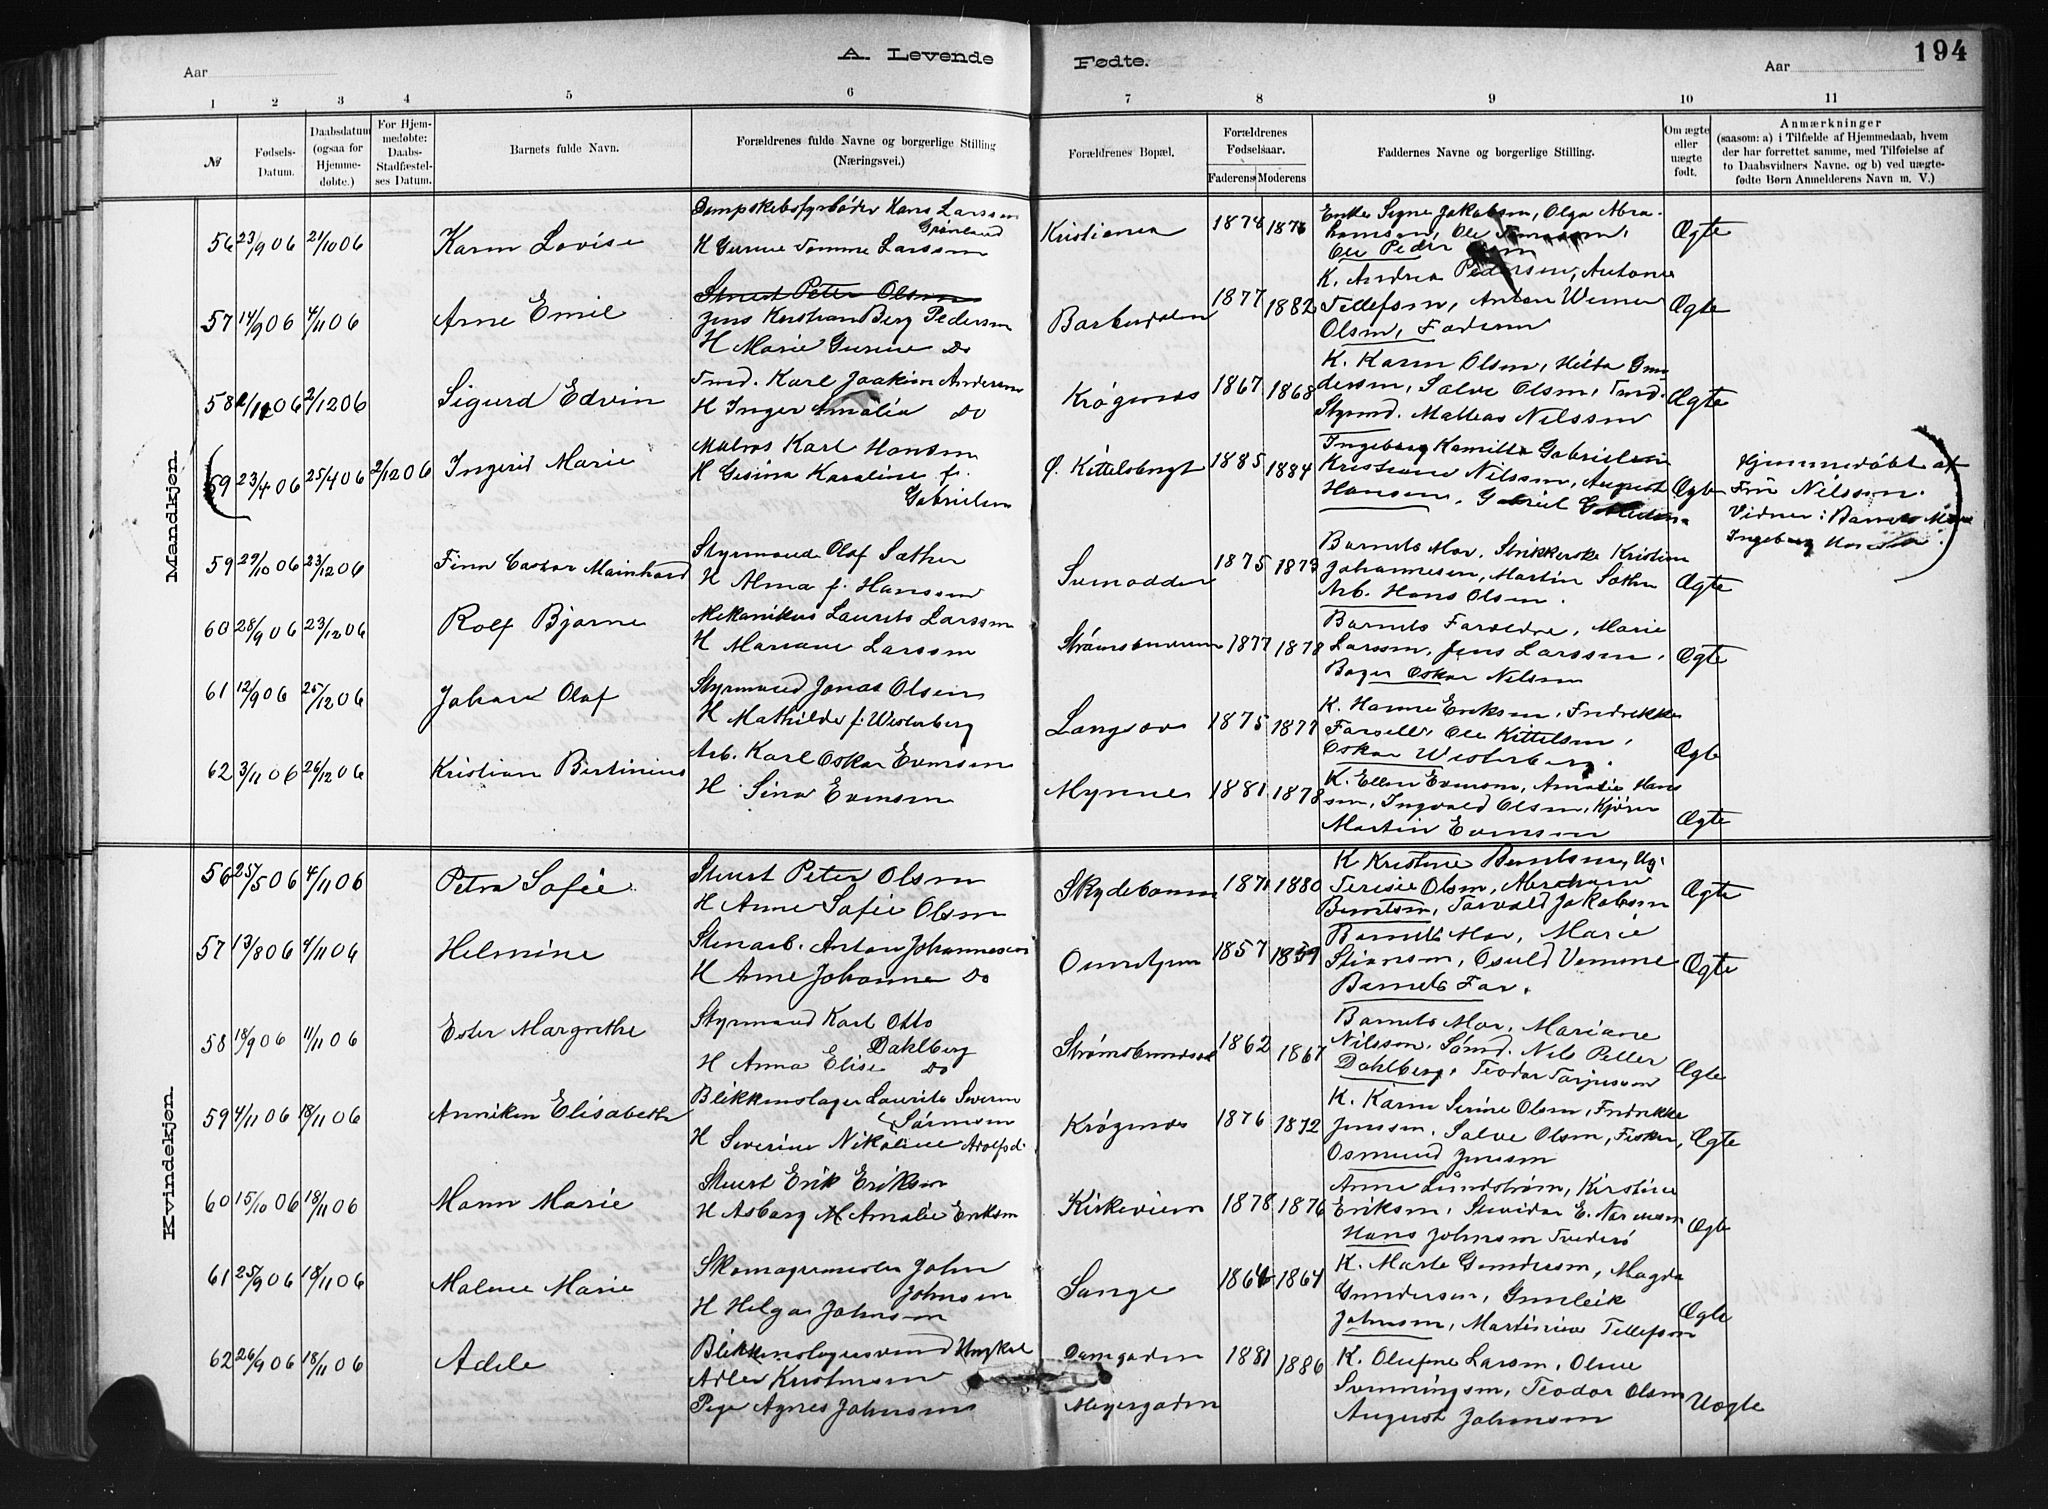 A. Levende Fødte. 194
Aar Aar
1 2 3 4 5 6 7 8 9 10 11
№
Fødsels-
Datum.
Daabsdatum
(ogsaa for
Hjemme-
døbte.)
For Hjem-
medøbte:
Daabs-
Stadfæstel-
ses Datum.
Barnets fulde Navn.
Forældrenes fulde Navne og borgerlige Stilling
(Næringsvei.)
Forældrenes Bopæl.
Forældrenes
Fødselsaar.
Faderens Moderens
Faddernes Navne og borgerlige Stilling.
Om ægte
eller
uægte
født.
Anmærkninger
(saasom: a) i Tilfælde af Hjemmedaab, hvem
der har forrettet samme, med Tilføielse af
to Daabsvidners Navne, og b) ved uægte-
fødte Børn Anmelderens Navn m. V.)
Mandkjøn.
56 23/9 06 21/10 06 Karen Lovise
Dampskibsfyrbøder Hans Larssen
Grønland
H Gurine Tomine Larssen
Kristiania 1874 1876
Enke Signe Jakobsen, Olga Abra-
hamsen, Ole
Ole Peder
Ægte
57 14/9 06 4/11 06 Arne Emil
Stuert Peter Olsen
Jens Kristian Berg Pedersen
H Marie Gurine Do
Barbudalen 1877 1882
K. Andrea Pedersen, Antonie
Tellefsen, Anton Werner
Olsen, Faderen
Ægte
58 06 2/12 06 Sigurd Edvin
Tmd. Karl Joakim Andersen
H Inger Amalia Do
Krøgenes 1867 1868
K. Karen Olsen, Hilda Gun-
dersen, Salve Olsen, Tmd.
Styrmd. Mathias Nilssen
Ægte
59 23/4 06 25/4 06 2/12 06 Ingerid Marie
Matros Karl Hansen
H Gesina Karoline f.
Gabrielsen
Ø. Kittelsbugt 1885 1884
Ingeborg Kamilla Gabrielsen
Kristiane Nilssen, August
Hansen, Gabriel
Ægte
Hjemmedøbt af
Fru Nilssen.
Vidner: Barnets Mor
Ingeborg
59 29/10 06 23/12 06 Finn Caspar Mainhard
Styrmand Olaf Sather
H Alma f. Hanssen
Sviodden 1875 1873
Barnets Mor, Strikkerske Kristine
Johannesen, Martin Sather
Arb. Hans Olsen.
Ægte
60 28/9 06 23/12 06 Rolf Bjarne
Mekanikus Laurits Larssen
H Mariane Larssen
Strømsbuveien 1877 1878
Barnets Forældre, Marie
Larssen, Jens Larssen,
Bager Oskar Nilsen
Ægte
61 12/9 06 25/12 06 Johan Olaf
Styrmand Jonas Olsen
H Mathilde f. Westerberg
Langsæv 1875 1877
K. Hanne Eriksen, Fredrikke
Farsell, Ole Kittelsen,
Oskar Westerberg.
Ægte
62 3/11 06 26/12 06 Kristian Bertinius
Arb. Karl Oskar Evensen
H. Sina Evensen
Myrene 1881 1878
K. Ellen Evensen, Amalie Hans
sen, Ingvald Olsen, Kjøren
Martin Evensen
Ægte
Kvindekjøn.
56 25/5 06 4/11 06 Petra Sofie
Stuert Peter Olsen
H Anne Sofie Olsen
Skydebanen 1871 1880
K Kristine Berntsen, Ug.
Teresie Olsen, Abraham
Berntsen, Torvald Jakobsen
Ægte
57 13/8 06 4/11 06 Helmine
Stenarb. Anton Johannesen
H Anne Johanne Do
1857 1859
Barnets Mor, Marie
Stiansen, Osuld Vemme
Barnets Far.
Ægte
58 18/9 06 11/11 06 Ester Margrethe
Styrmand Karl Otto
Dahlberg
H Anna Elise Do
Strømsbunæs 1862 1867
Barnets Mor, Mariane
Nilsson, Sømd. Nils Petter
Dahlberg, Teodor Torjussen
Ægte
59 4/11 06 18/11 06 Anniken Elisabeth
Blikkenslager Laurits Severin
Sørensen
H Severine Nikoline Adolfsd.
Krøgenes 1876 1872
K. Karen Serine Olsen, Fredrikke
Jenssen, Salve Olsen, Fisker,
Osmund Jenssen
Ægte
60 15/10 06 18/11 06 Mann Marie
Stuert Erik Eriksen
H Asborg M Amalie Eriksen
Kirkeveien 1878 1876
Anne Lundstrøm, Kirstine
Eriksen, Stuvidar E.
Hans Johnsen Tvedersø
Ægte
61 25/9 06 18/11 06 Malene Marie
Skomagermester John
Johnsen
H Helga Johnsen
Sange 1864 1864
K. Marte Gundersen, Magda
Gundersen, Gunleik
Johnsen, Martinius Tellefsen
Ægte
62 26/9 06 18/11 06 Adele
Blikkenslagersvend Ungkal
Adler Kristensen
Pige Agnes Johnsen
Damgaden
Meyergaden 1881 1886
K. Olufine Larsen, Oline
Svenningsen, Teodor Olsen
August Johnsen
Uægte